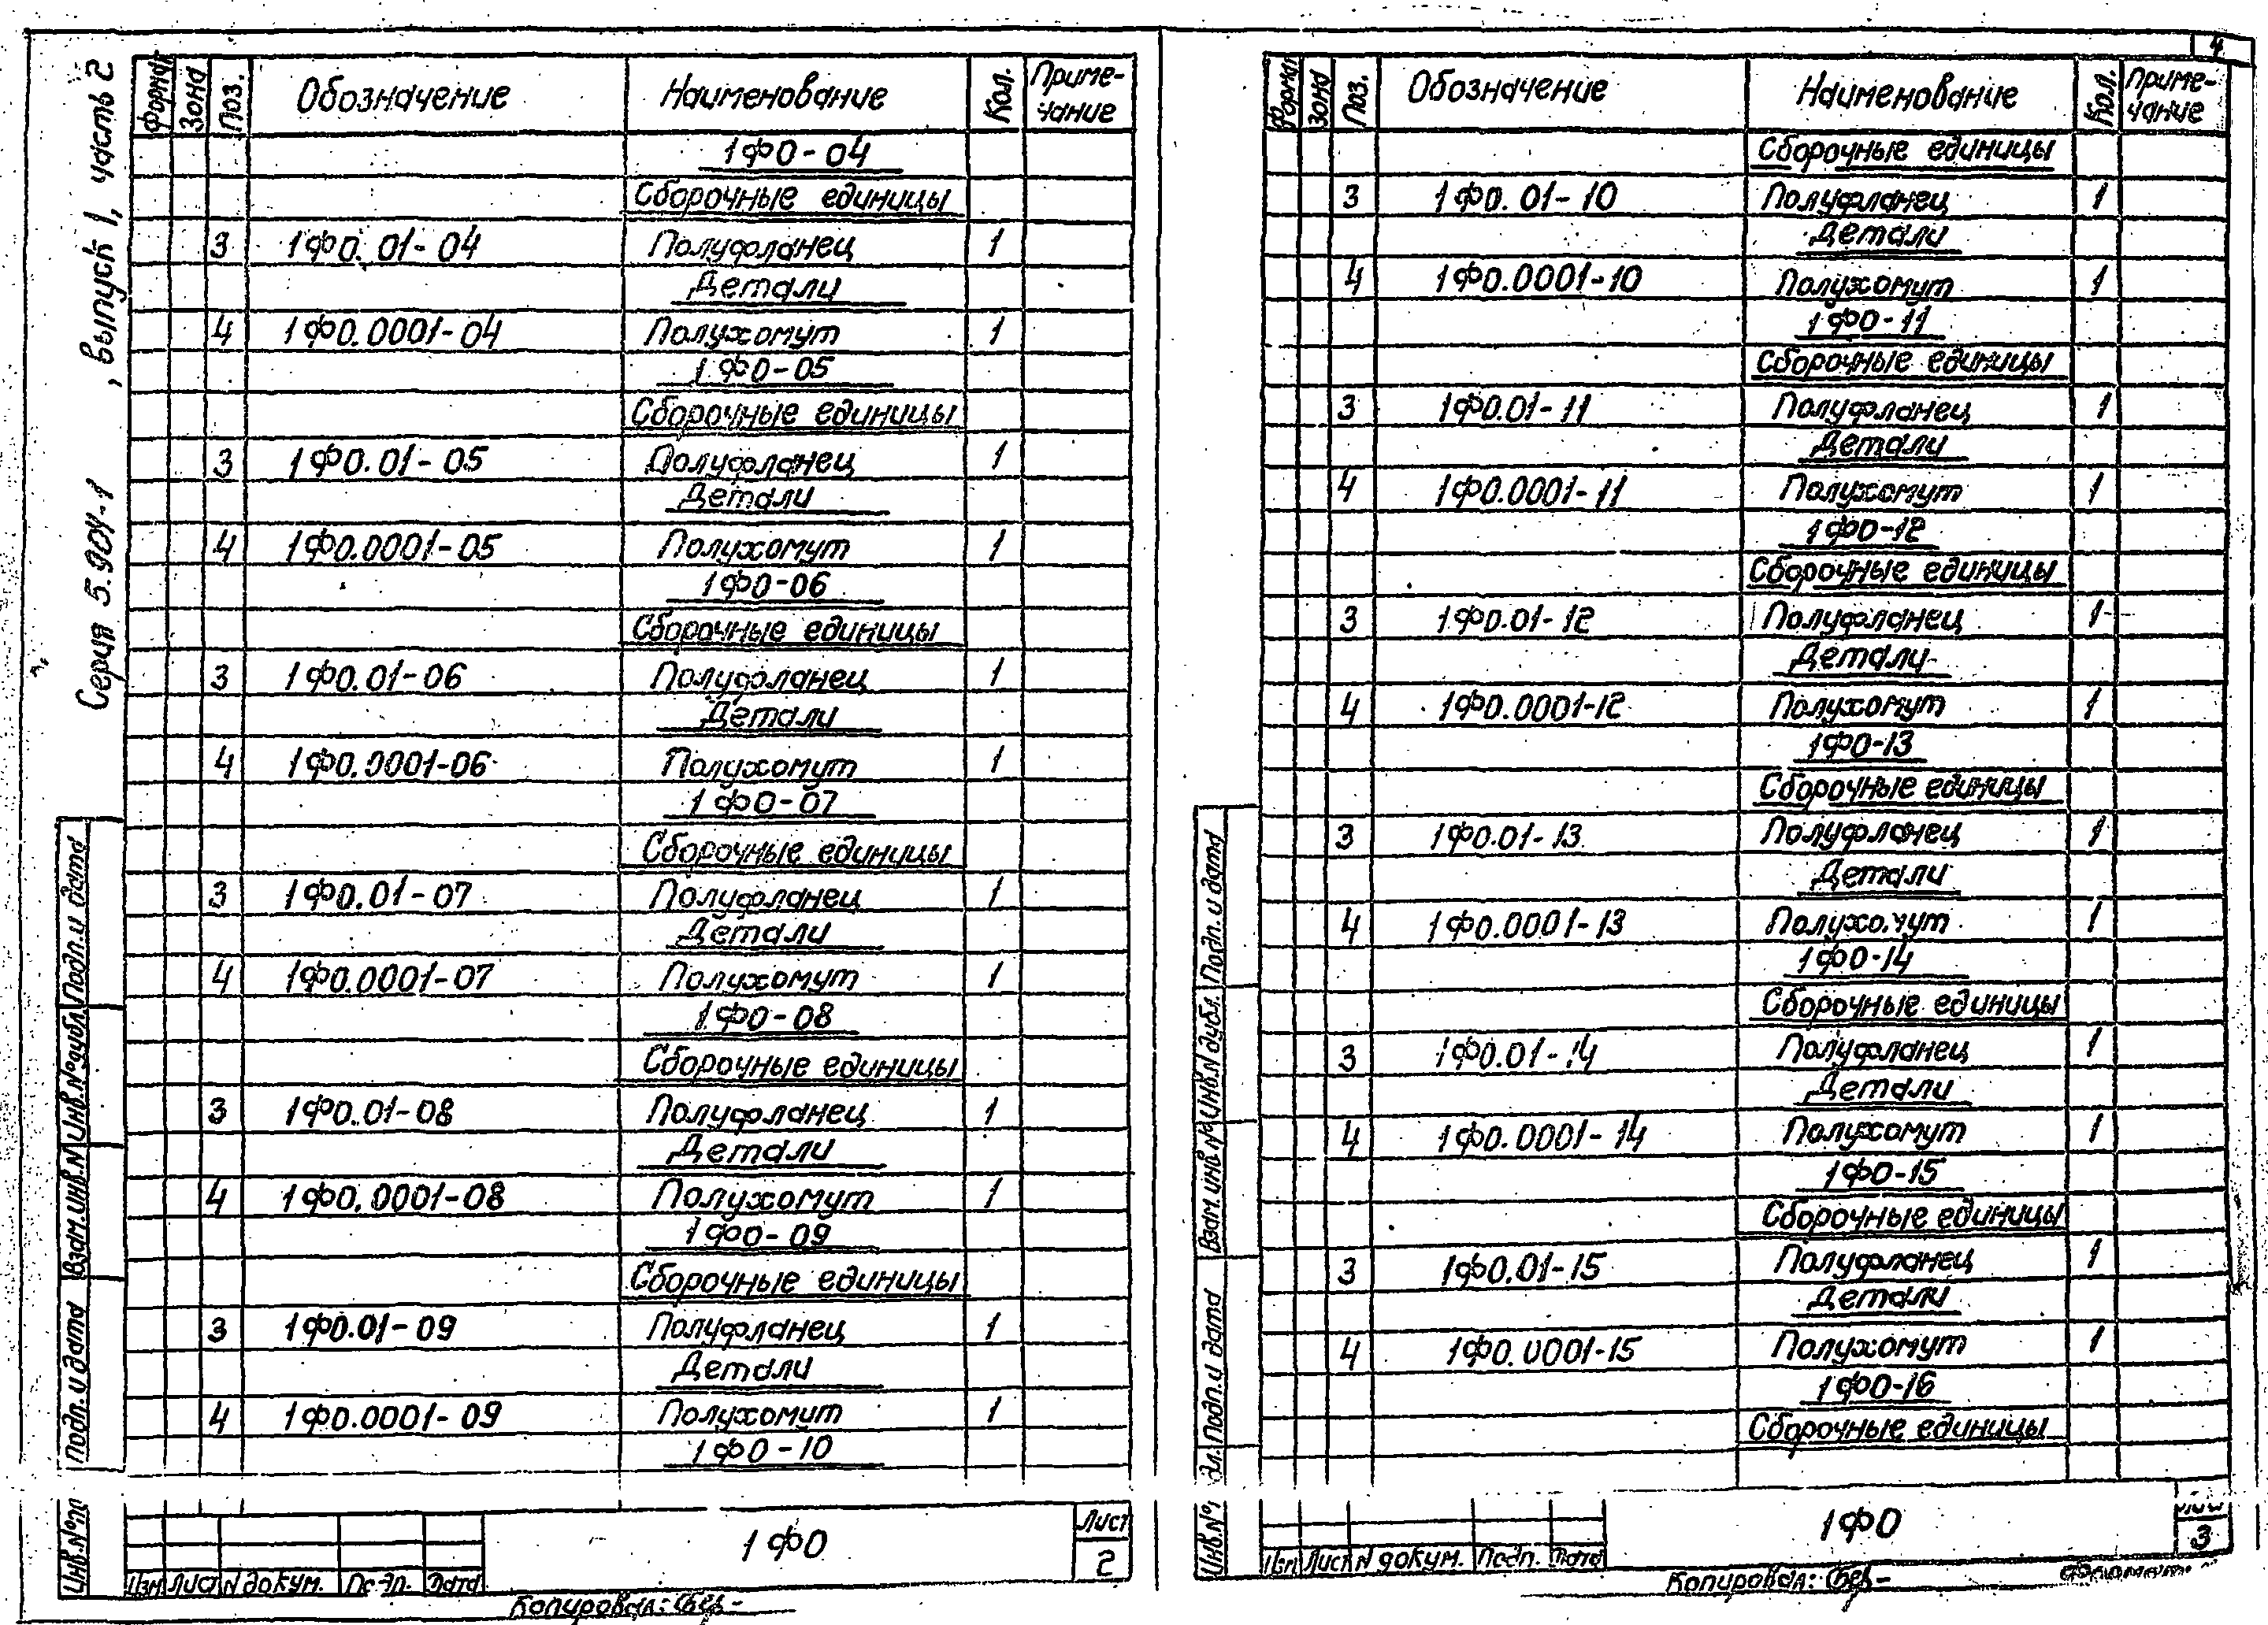 4
Серия 5.904-1 , выпуск 1, часть 2
Формат Зона Поз. Обозначение Наименование Кол. Приме-
чание
1ФО-04
Сборочные единицы
3 1ФО.01-04 Полуфланец 1
Детали
4 1ФО.0001-04 Полухомут 1
1ФО-05
Сборочные единицы
3 1ФО.01-05 Полуфланец 1
Детали
4 1ФО.0001-05 Полухомут 1
1ФО-06
Сборочные единицы
3 1ФО.01-06 Полуфланец 1
Детали
4 1ФО.0001-06 Полухомут 1
1ФО-07
Сборочные единицы
3 1ФО.01-07 Полуфланец 1
Детали
4 1ФО.0001-07 Полухомут 1
1ФО-08
Сборочные единицы
3 1ФО.01-08 Полуфланец 1
Детали
4 1ФО.0001-08 Полухомут 1
1ФО-09
Сборочные единицы
3 1ФО.01-09 Полуфланец 1
Детали
4 1ФО.0001-09 Полухомут 1
1ФО-10
Подп. и дата
Инв.№дубл.
Взам.инв.№
Подп. и дата
Инв.№
1ФО
Лист
2
Изм Лист № докум. Подп. Дата
Копировал:
Формат Зона Поз. Обозначение Наименование Кол. Приме-
чание
Сборочные единицы
3 1ФО.01-10 Полуфланец 1
Детали
4 1ФО.0001-10 Полухомут 1
1ФО-11
Сборочные единицы
3 1ФО.01-11 Полуфланец 1
Детали
4 1ФО.0001-11 Полухомут 1
1ФО-12
Сборочные единицы
3 1ФО.01-12 Полуфланец 1
Детали
4 1ФО.0001-12 Полухомут 1
1ФО-13
Сборочные единицы
3 1ФО.01-13 Полуфланец 1
Детали
4 1ФО.0001-13 Полухомут 1
1ФО-14
Сборочные единицы
3 1ФО.01-14 Полуфланец 1
Детали
4 1ФО.0001-14 Полухомут 1
1ФО-15
Сборочные единицы
3 1ФО.01-15 Полуфланец 1
Детали
4 1ФО.0001-15 Полухомут 1
1ФО-16
Сборочные единицы
Подп. и дата
Инв.№ дубл.
Взам.инв.№
Подп. и дата
Инв.№
1ФО
Лист
3
Изм Лист № докум. Подп. Дата
Копировал:
Формат